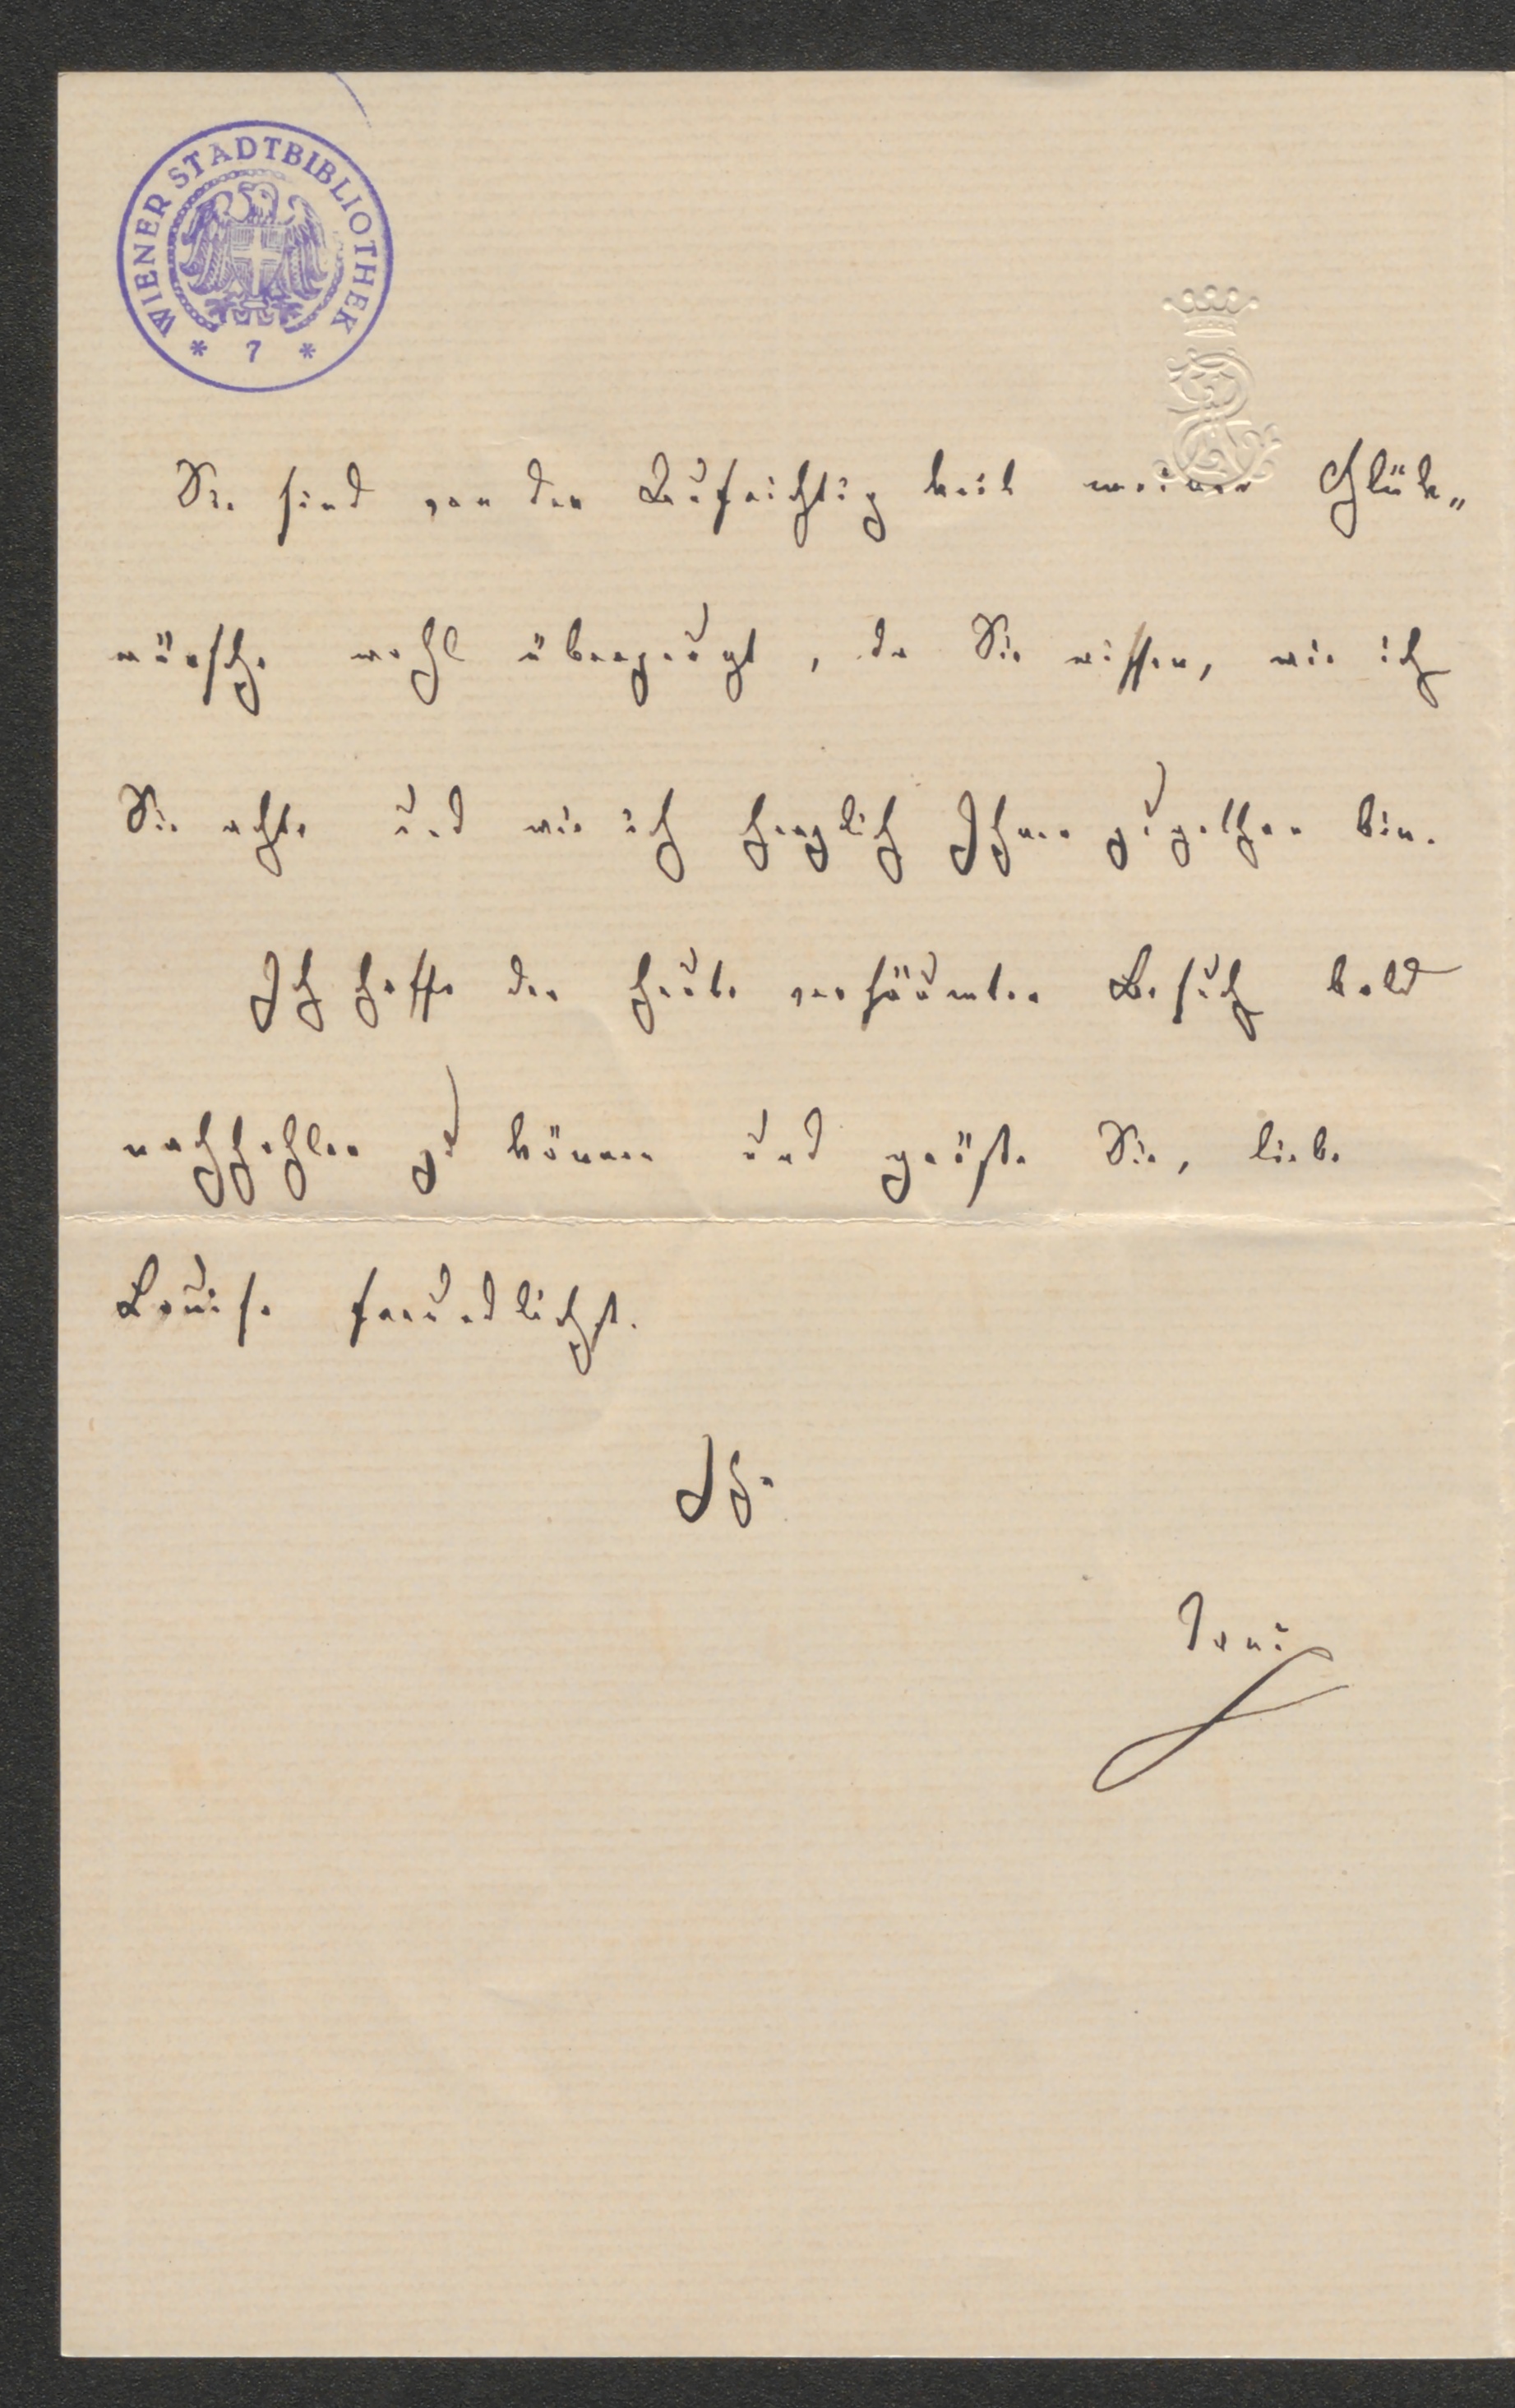 WIENER STADTBIBLIOTHEK
* 7 *
Sie sind von der Aufrichtigkeit meiner Glück„
wünsche wohl überzeugt, da Sie wissen, wie ich
Sie achte und wie ich herzlich Ihnen zugethan bin.
Ich hoffe den heute versäumten Besuch bald
nachhohlen zu können und grüße Sie, liebe
Louise freundlichst.
Ihr
Toni